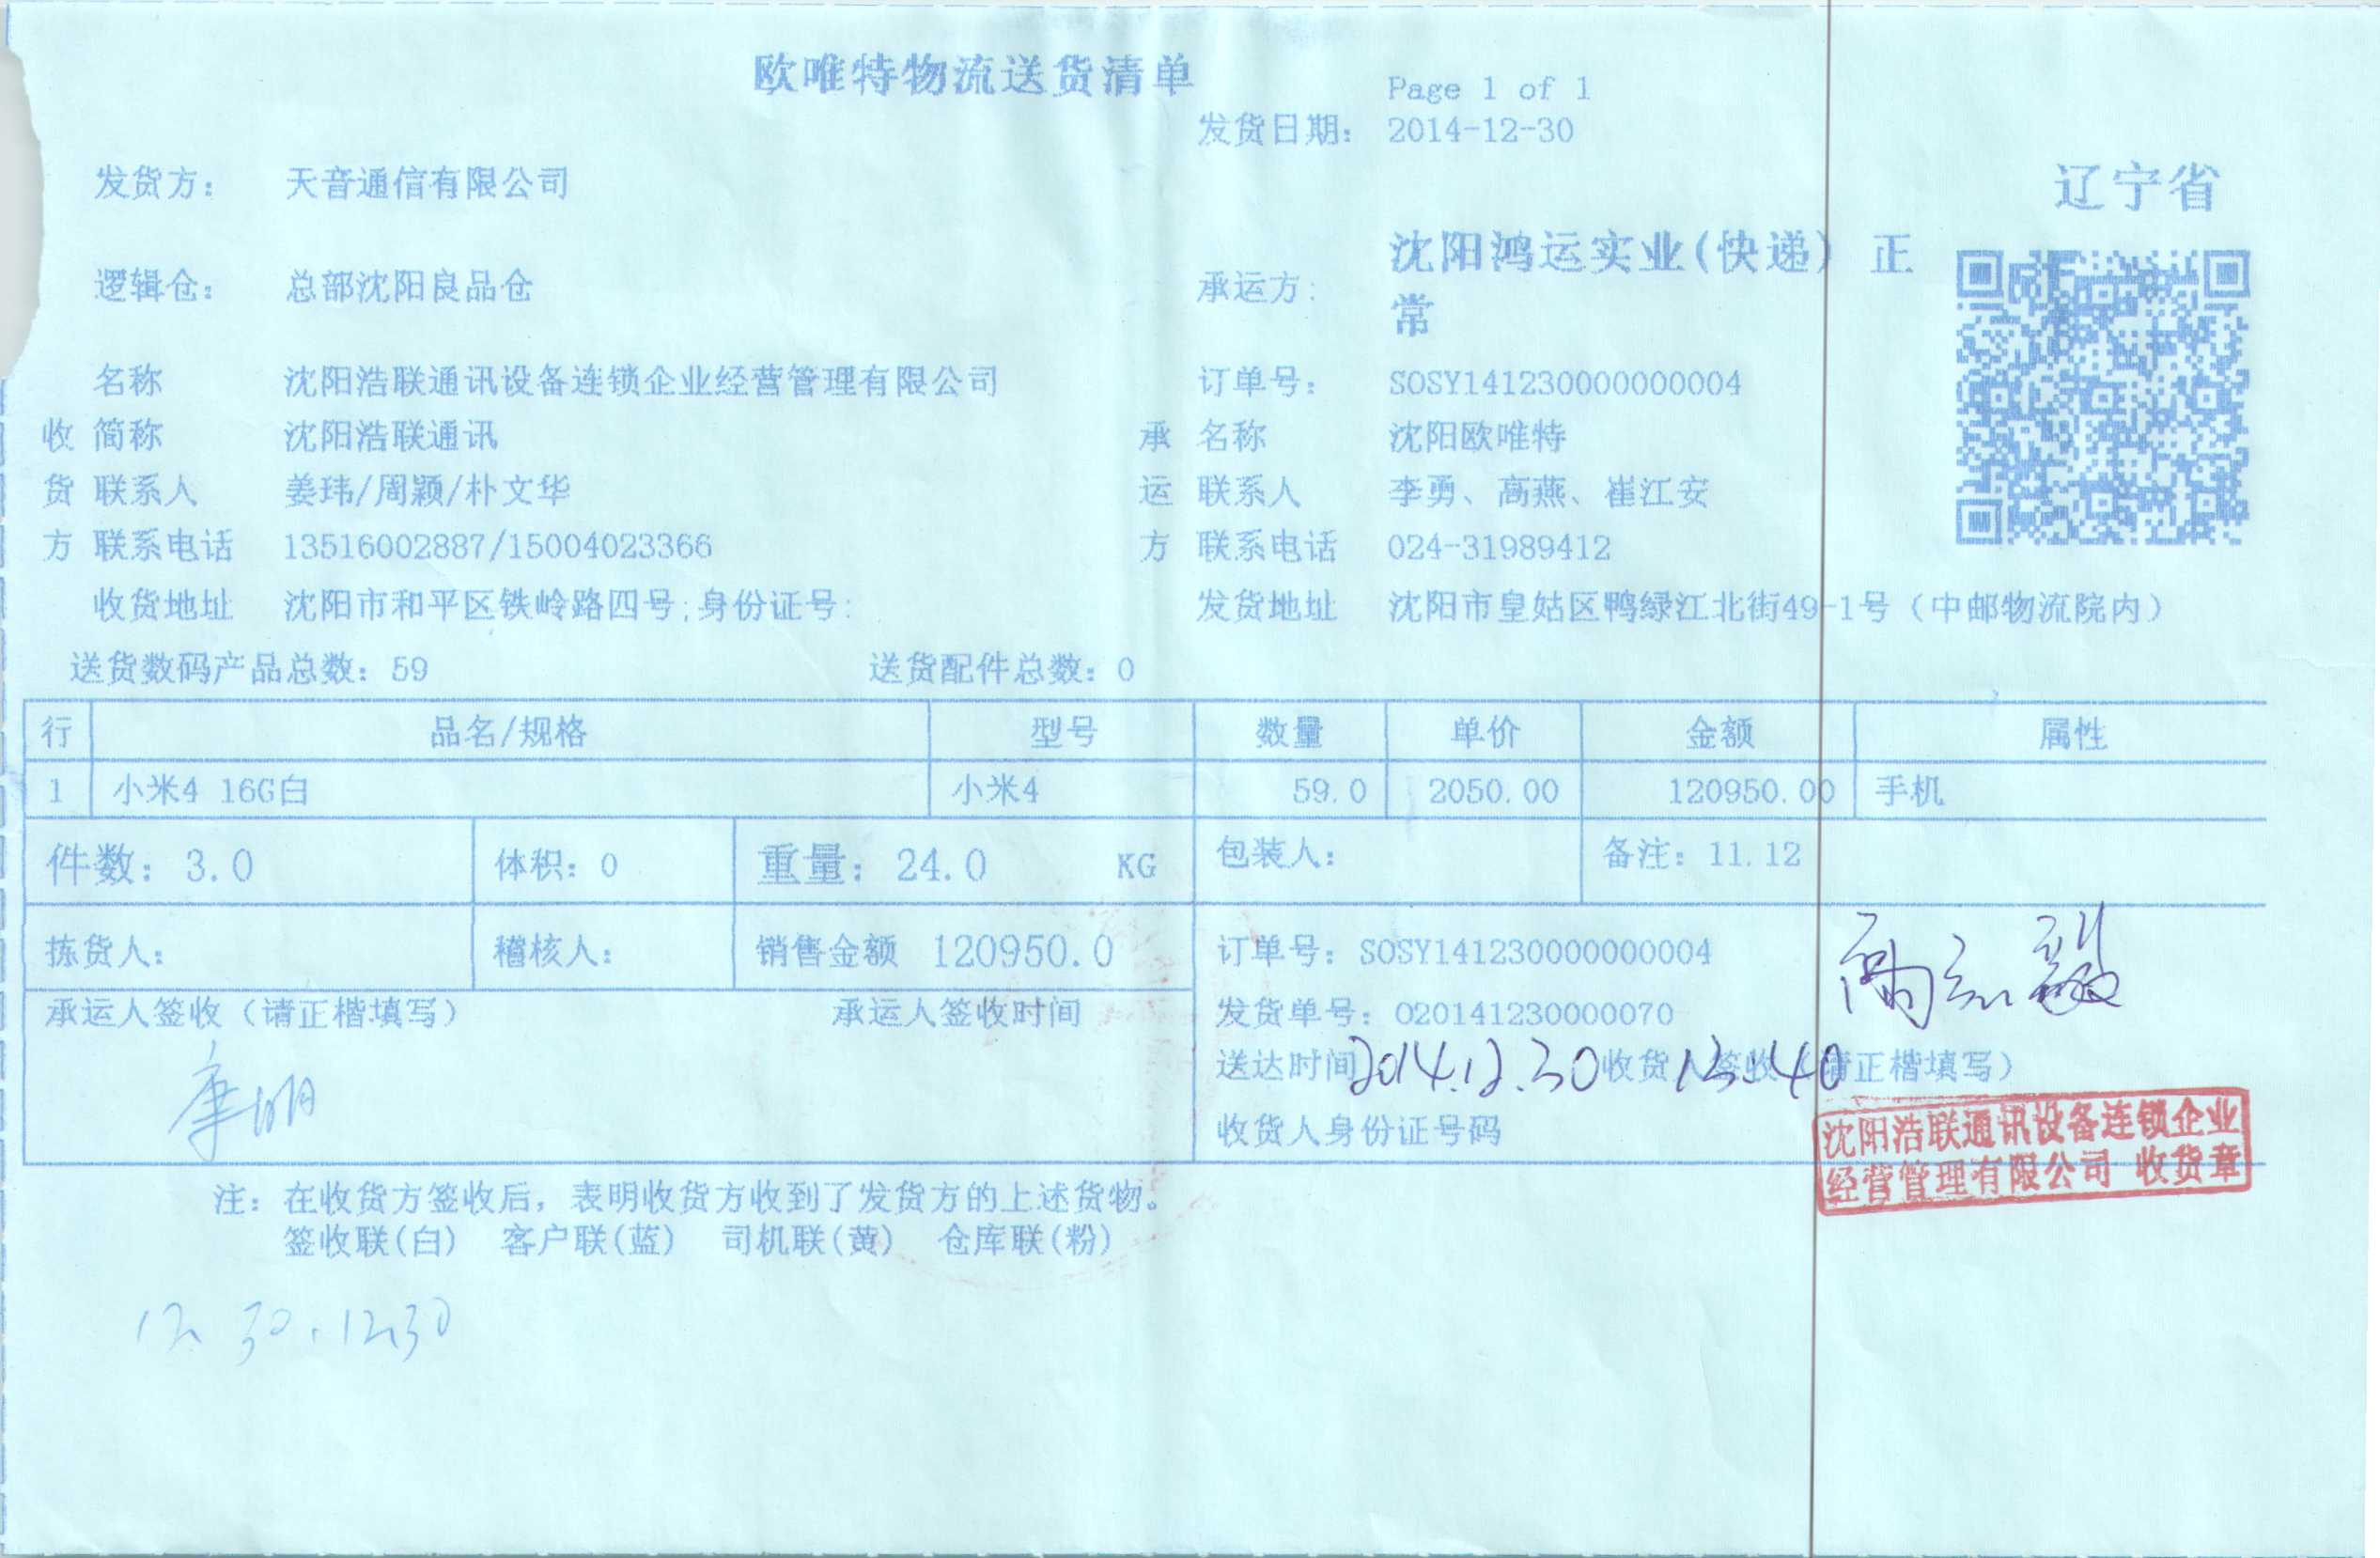 欧唯特物流送货清单
Page 1 of 1
发货日期： 2014-12-30
发货方： 天音通信有限公司
辽宁省
逻辑仓： 总部沈阳良品仓 承运方： 沈阳鸿运实业(快递) 正
常
名称 沈阳浩联通讯设备连锁企业经营管理有限公司 订单号： SOSY141230000000004
收 简称 沈阳浩联通讯 承 名称 沈阳欧唯特
货 联系人 姜玮/周颖/朴文华 运 联系人 李勇、高燕、崔江安
方 联系电话 13516002887/15004023366 方 联系电话 024-31989412
收货地址 沈阳市和平区铁岭路四号;身份证号: 发货地址 沈阳市皇姑区鸭绿江北街49-1号（中邮物流院内）
送货数码产品总数：59 送货配件总数：0
行 品名/规格 型号 数量 单价 金额 属性
1 小米4 16G白 小米4 59.0 2050.00 120950.00 手机
件数：3.0 体积：0 重量：24.0 KG 包装人： 备注：11.12
拣货人： 稽核人： 销售金额 120950.0 订单号：SOSY141230000000004
承运人签收（请正楷填写） 承运人签收时间 发货单号：O20141230000070
送达时间 2014.12.30 收货人签收（请正楷填写） 13:40
收货人身份证号码
沈阳浩联通讯设备连锁企业
经营管理有限公司 收货章
注：在收货方签收后，表明收货方收到了发货方的上述货物。
签收联(白) 客户联(蓝) 司机联(黄) 仓库联(粉)
12.30.1230